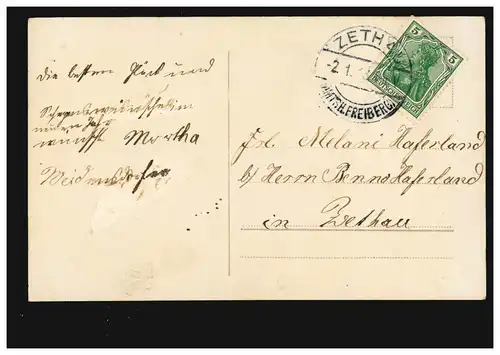 Die besten Glück und
Segenswünsche im
neuen Jahr
wünscht Martha
ZETHAU
-2.1.
AMTSH. FREIBERG
5 5
DEUTSCHES REICH
Frl. Melani Haferland
b/ Herrn Benno Haferland
in Zethau